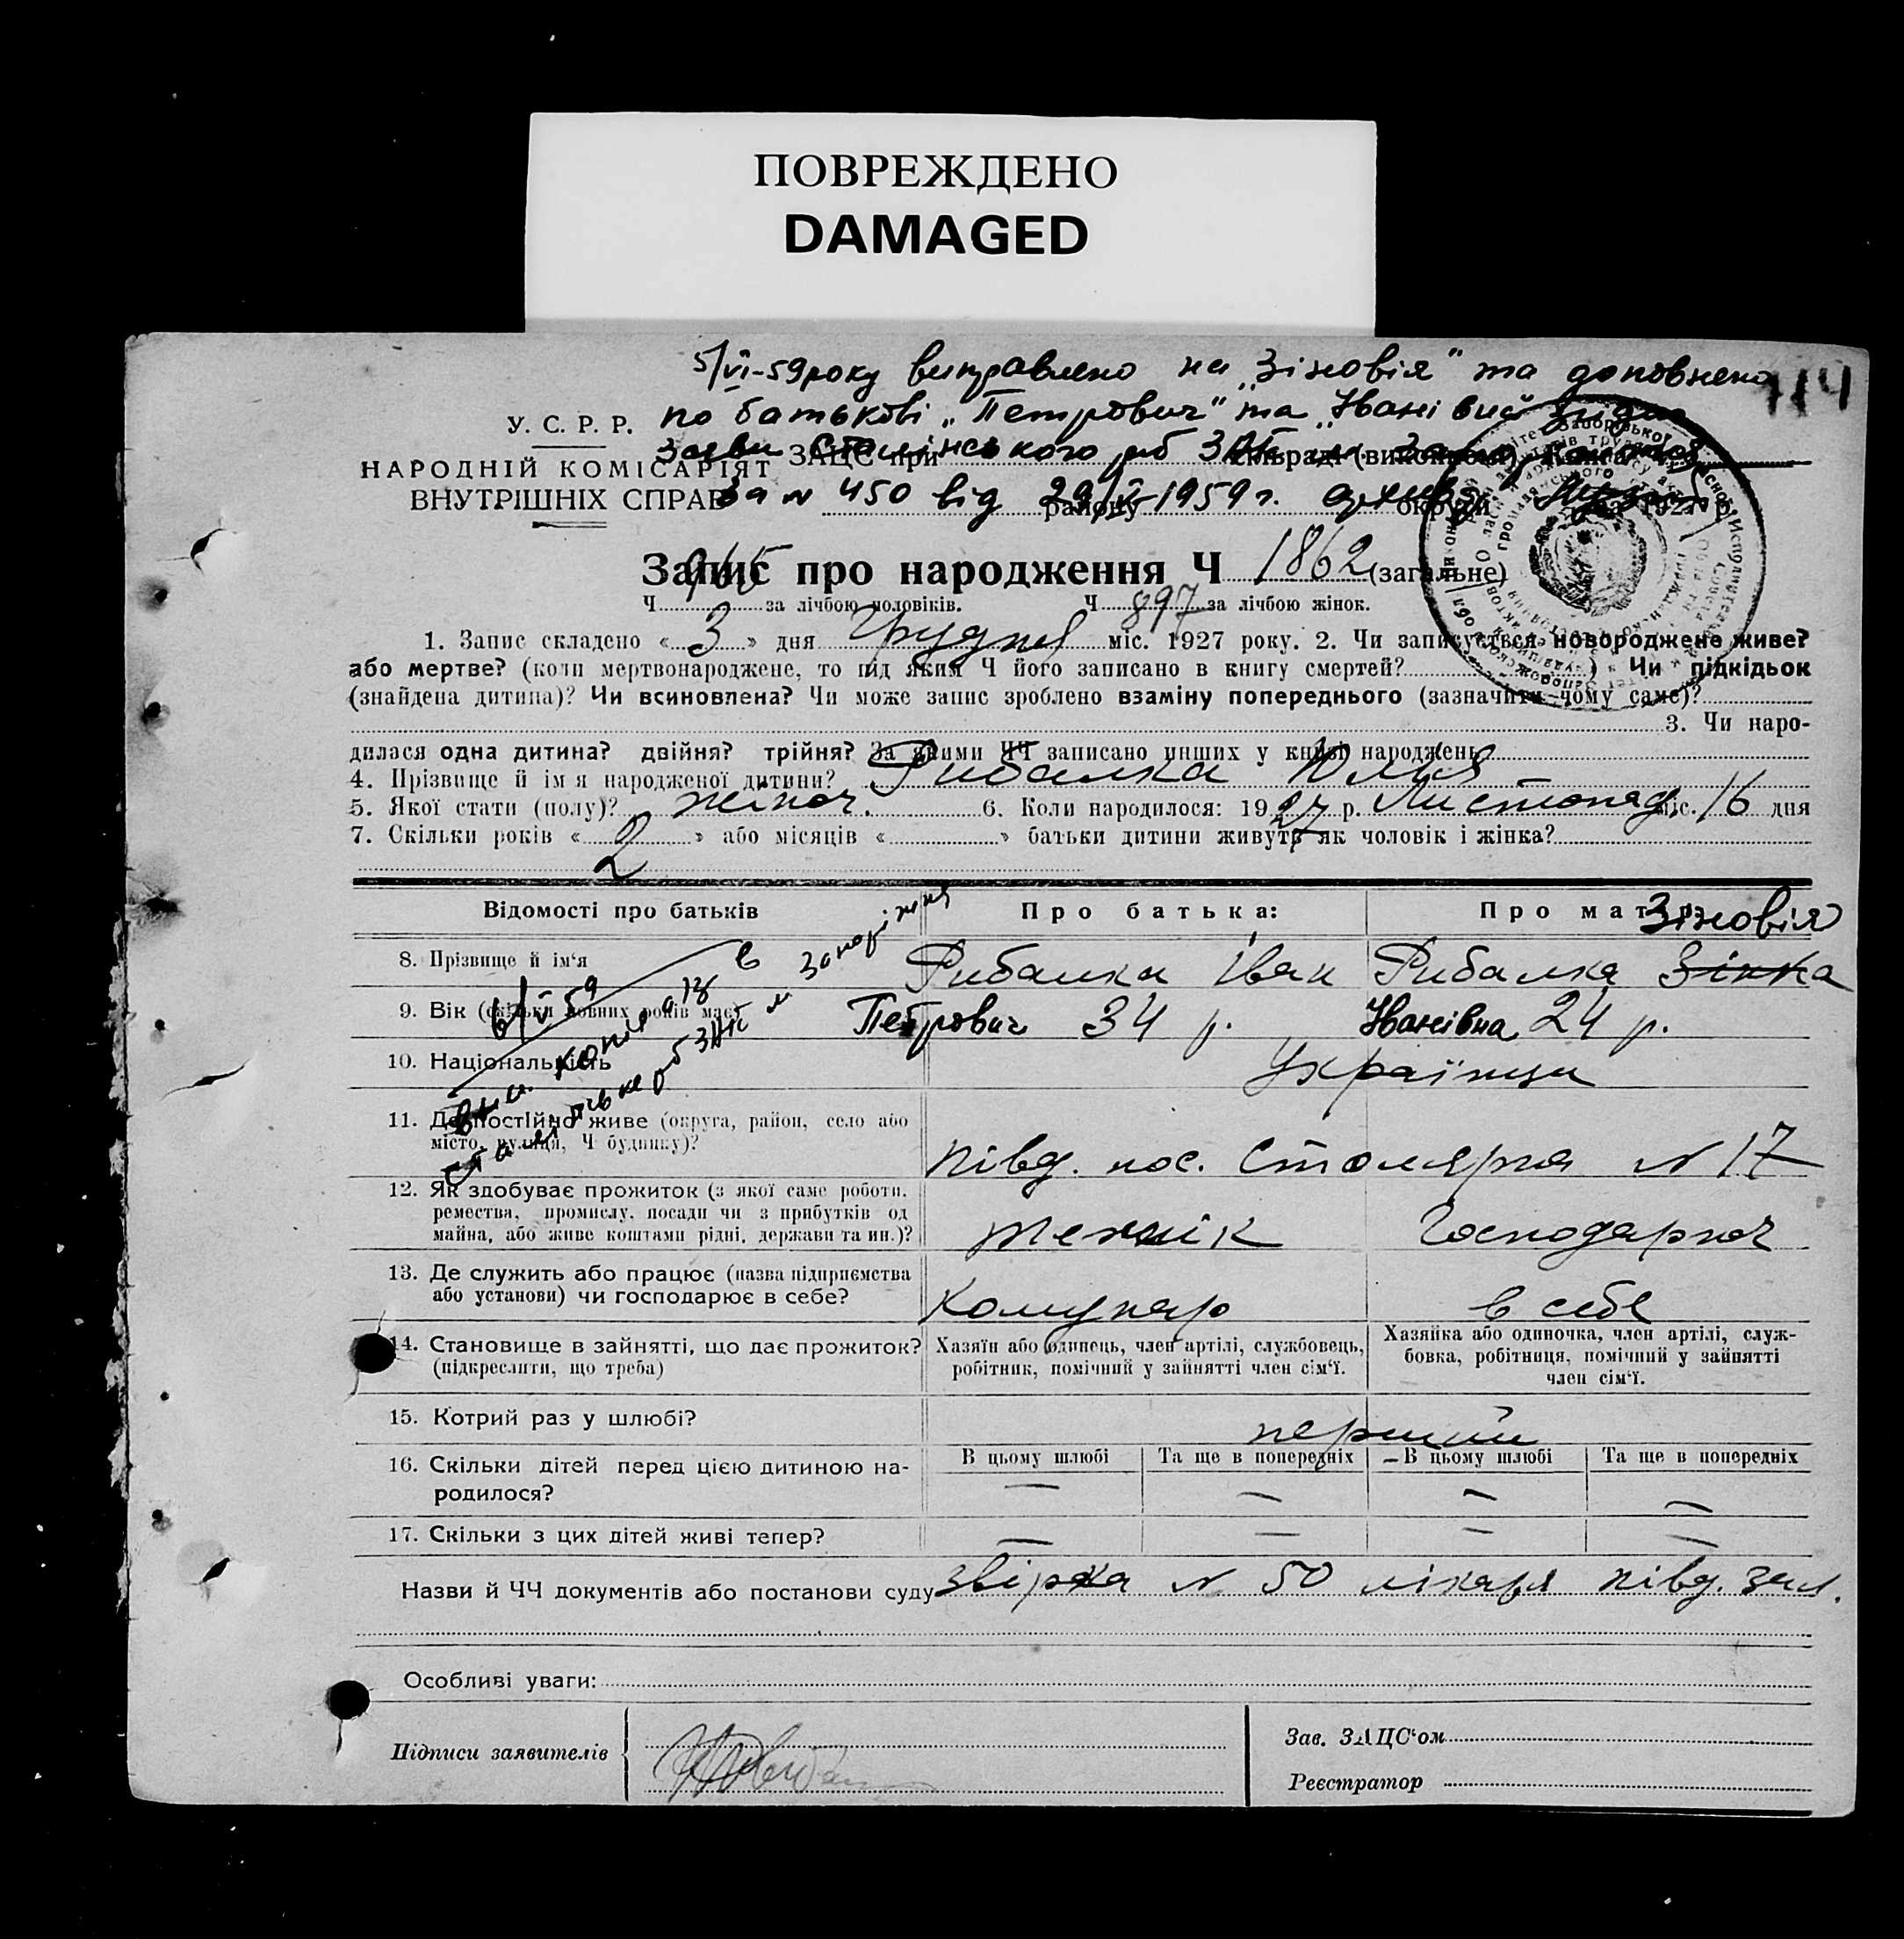 ПОВРЕЖДЕНО
DAMAGED
5/VI-59 року виправлено на „Зіновія" та доповнено
114
У. С. Р. Р. по батькові „Петрович" та „Іванівна" згідно
НАРОДНІЙ КОМІСАРІЯТ ЗАЦС при сільраді (виконкомі)
заяви Сталінського рб ЗАГС м. Запоріжжя
ВНУТРІШНІХ СПРАВ району округи 1927 р.
за № 450 від 29/V-1959 г.
Запис про народження Ч 1862 (загальне)
Ч 965 за лічбою чоловіків. Ч 897 за лічбою жінок.
1. Запис складено « 3 » дня Грудня міс. 1927 року. 2. Чи записується новороджене живе?
або мертве? (коли мертвонароджене, то під яким Ч його записано в книгу смертей? ) Чи підкідьок
(знайдена дитина)? Чи всиновлена? Чи може запис зроблено взаміну попереднього (зазначити чому саме)?
3. Чи наро-
дилася одна дитина? двійня? трійня? За якими ЧЧ записано инших у книзі народжень
4. Прізвище й ім'я народженої дитини? Рибалка Юлія
5. Якої стати (полу)? жіноч. 6. Коли народилося: 1927 р. Листопад. міс. 16 дня
7. Скільки років « 2 » або місяців « » батьки дитини живуть як чоловік і жінка?
Відомості про батьків Про батька: Про матір:
Зіновія
8. Прізвище й ім'я Рибалка Іван Рибалка Зінка
9. Вік (скільки повних років має) Петрович 34 р. Іванівна 24 р.
6/VI 59 в
вид. копія
м Запоріжжя
10. Національність Українци
11. Де постійно живе (округа, район, село або
місто, вулиця, Ч будинку)? півд. пос. Столярна № 17
12. Як здобуває прожиток (з якої саме роботи,
ремества, промислу, посади чи з прибутків од
майна, або живе коштами рідні, держави та ин.)? технік Господарюч
13. Де служить або працює (назва підприємства
або установи) чи господарює в себе? Комунар в себе
14. Становище в зайнятті, що дає прожиток?
(підкреслити, що треба)
Хазяїн або одинець, член артілі, службовець,
робітник, помічний у зайнятті член сім'ї.
Хазяйка або одиночка, член артілі, служ-
бовка, робітниця, помічний у зайнятті
член сім'ї.
15. Котрий раз у шлюбі? перший
16. Скільки дітей перед цією дитиною на-
родилося?
В цьому шлюбі Та ще в попередніх В цьому шлюбі Та ще в попередніх
— — — —
17. Скільки з цих дітей живі тепер? — — — —
Назви й ЧЧ документів або постанови суду звірка № 50 лікаря півд. зал.
Особливі уваги:
Підписи заявителів
Зав. ЗАЦС'ом
Реєстратор